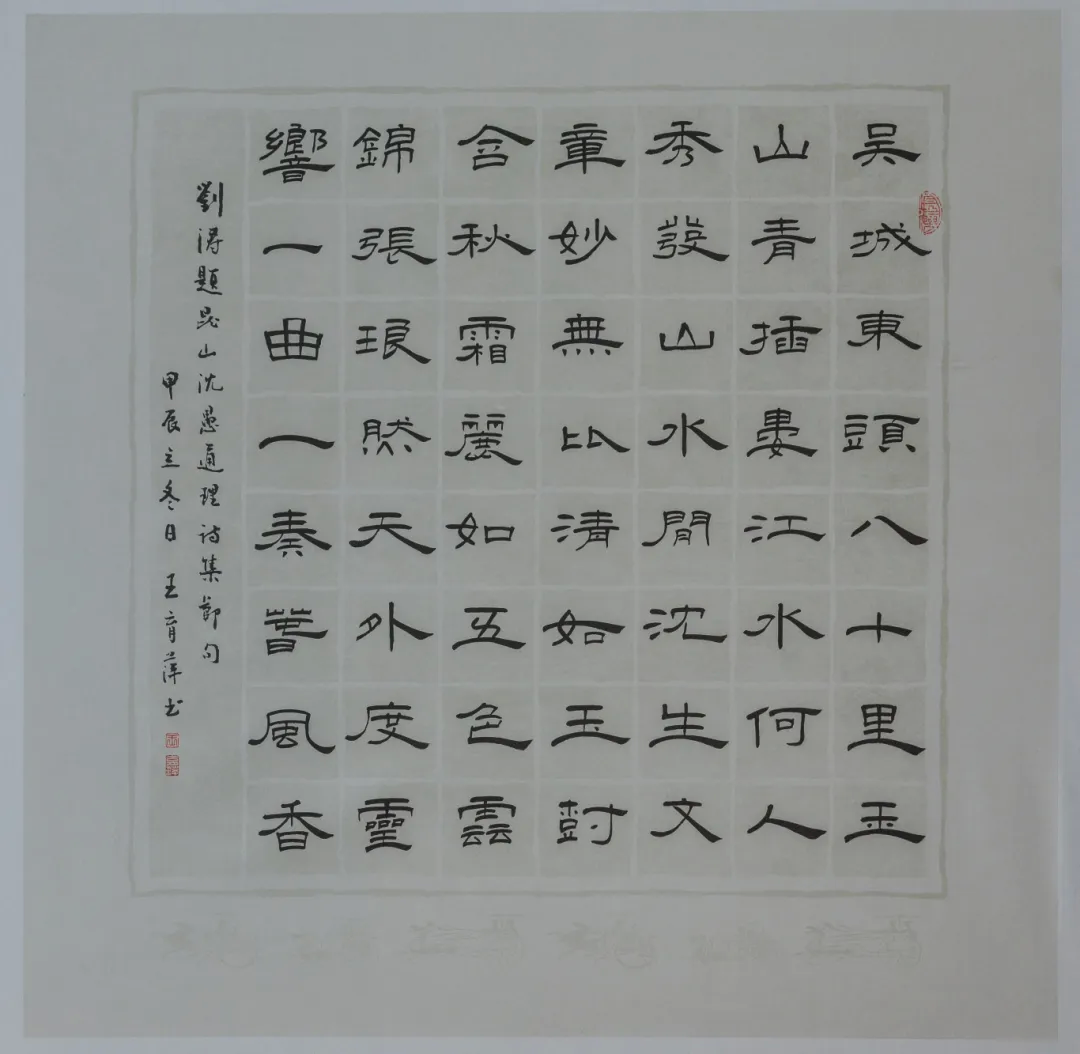 吴城東頭八十里玉
山青插婁江水何人
秀發山水間沈生文
章妙無比清如玉樹
含秋霜麗如五色雲
錦張琅然天外度靈
響一曲一奏春風香
劉溥題崑山沈愚通理诗集節句
甲辰立冬日 王育萍书